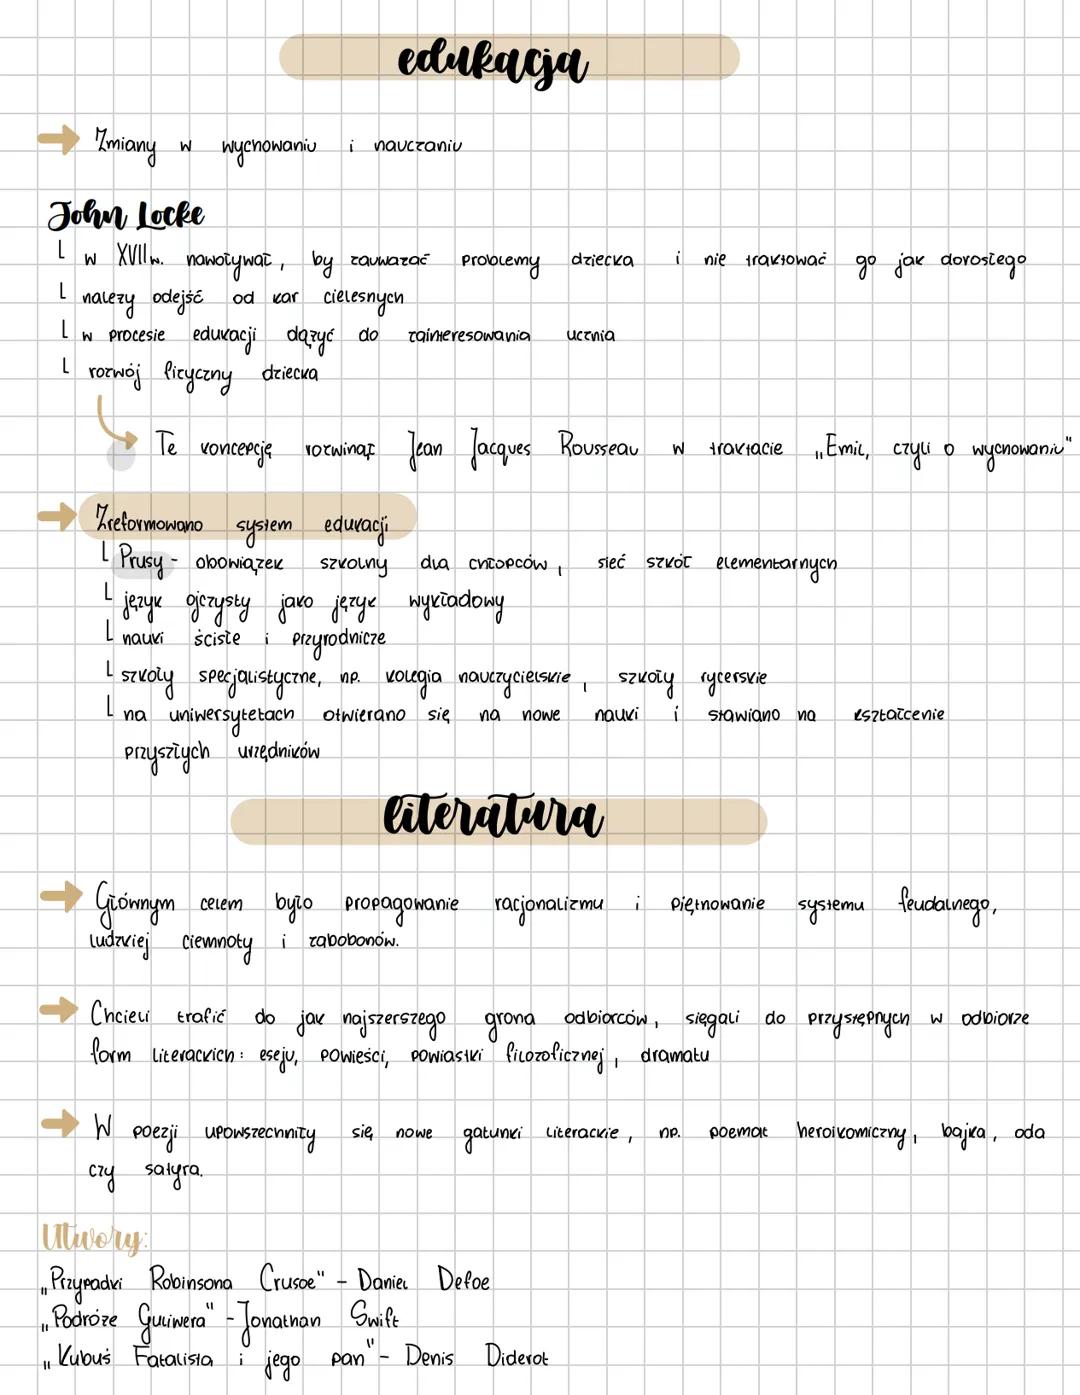 edukacja
→ Zmiany w wychowaniu i nauczaniu
John Locke
└ w XVII w. nawoływał, by zauważać problemy dziecka i nie traktować go jak dorosłego
└ należy odejść od kar cielesnych
└ w procesie edukacji dążyć do zainteresowania ucznia
└ rozwój fizyczny dziecka
Te koncepcję rozwinął Jean Jacques Rousseau w traktacie „Emil, czyli o wychowaniu"
→ Zreformowano system edukacji
└ Prusy - obowiązek szkolny dla chłopców, sieć szkół elementarnych
└ język ojczysty jako język wykładowy
└ nauki ścisłe i przyrodnicze
└ szkoły specjalistyczne, np. kolegia nauczycielskie, szkoły rycerskie
└ na uniwersytetach otwierano się na nowe nauki i stawiano na kształcenie
przyszłych urzędników
literatura
→ Głównym celem było propagowanie racjonalizmu i piętnowanie systemu feudalnego,
ludzkiej ciemnoty i zabobonów.
→ Chcieli trafić do jak najszerszego grona odbiorców, sięgali do przystępnych w odbiorze
form literackich: eseju, powieści, powiastki filozoficznej, dramatu
→ W poezji upowszechniły się nowe gatunki literackie, np. poemat heroikomiczny, bajka, oda
czy satyra.
Utwory:
„Przypadki Robinsona Crusoe" - Daniel Defoe
„Podróże Guliwera" - Jonathan Swift
„Kubuś Fatalista i jego pan" - Denis Diderot